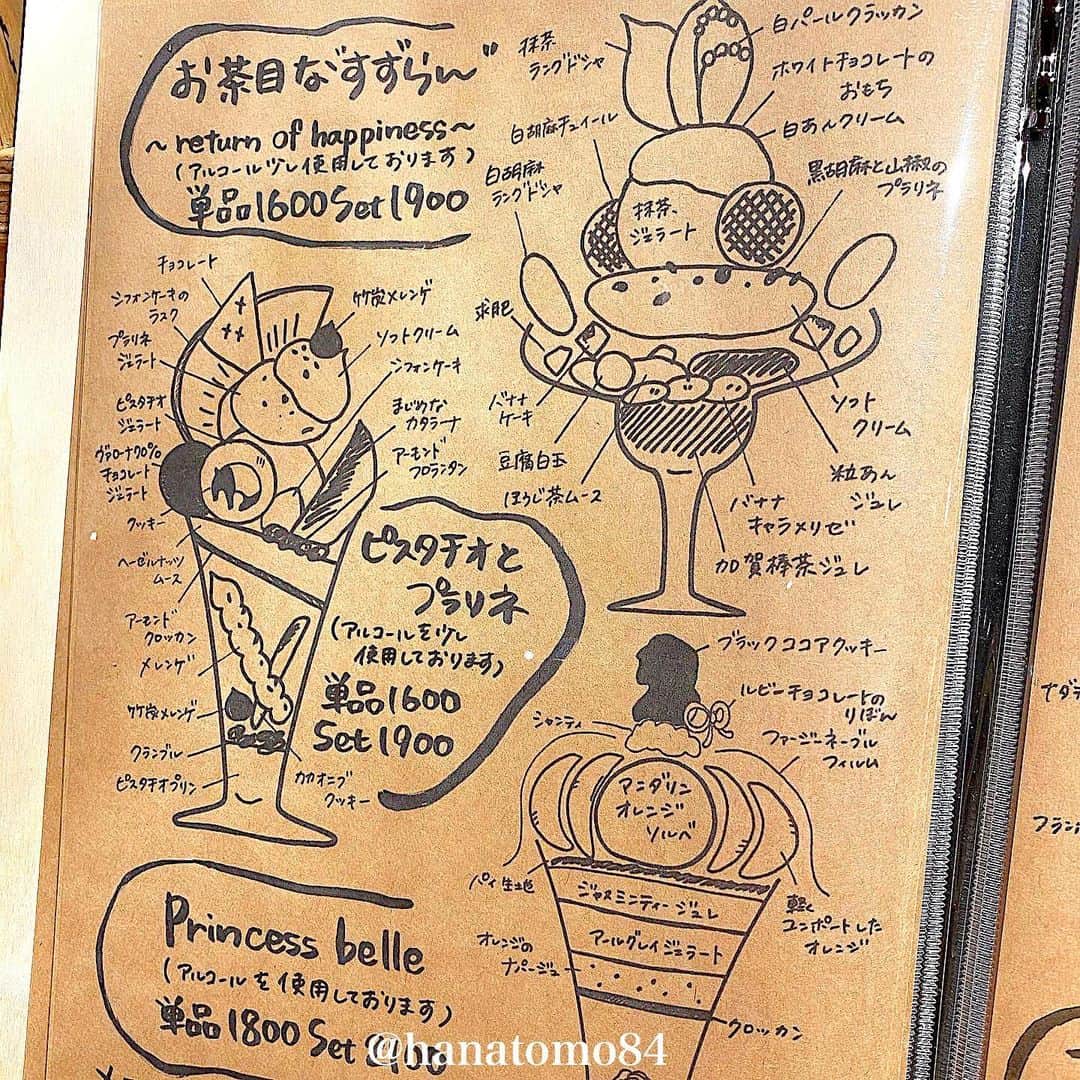 お茶目な"すずらん"
~return of happiness~
(アルコール少し使用しております)
単品1600 Set 1900
抹茶
ラングドシャ
白パールクラッカン
ホワイトチョコレートの
おもち
白あんクリーム
白胡麻チュイール
白胡麻
ラングドシャ
黒胡麻と山椒の
プラリネ
抹茶
ジェラート
求肥
バナナ
ケーキ
豆腐白玉
ほうじ茶ムース
ソフト
クリーム
粒あん
ジュレ
バナナ
キャラメリゼ
加賀棒茶ジュレ
チョコレート
シフォンケーキの
ラスク
プラリネ
ジェラート
ピスタチオ
ジェラート
ヴァローナ70%
チョコレート
ジェラート
クッキー
ヘーゼルナッツ
ムース
アーモンド
クロッカン
メレンゲ
竹炭メレンゲ
クランブル
ピスタチオプリン
竹炭メレンゲ
ソフトクリーム
シフォンケーキ
まじめな
カタラーナ
アーモンド
フロランタン
カカオニブ
クッキー
ピスタチオと
プラリネ
(アルコールを少し
使用しております)
単品1600
Set 1900
ブラックココアクッキー
ルビーチョコレートの
りぼん
シャンティ
ファージーネーブル
フィルム
マンダリン
オレンジ
ソルベ
パイ生地
ジャスミンティージュレ
軽く
コンポートした
オレンジ
オレンジの
ナパージュ
アールグレイジェラート
クロッカン
Princess belle
(アルコールを使用しております)
単品1800 Set 2100
@hanatomo84